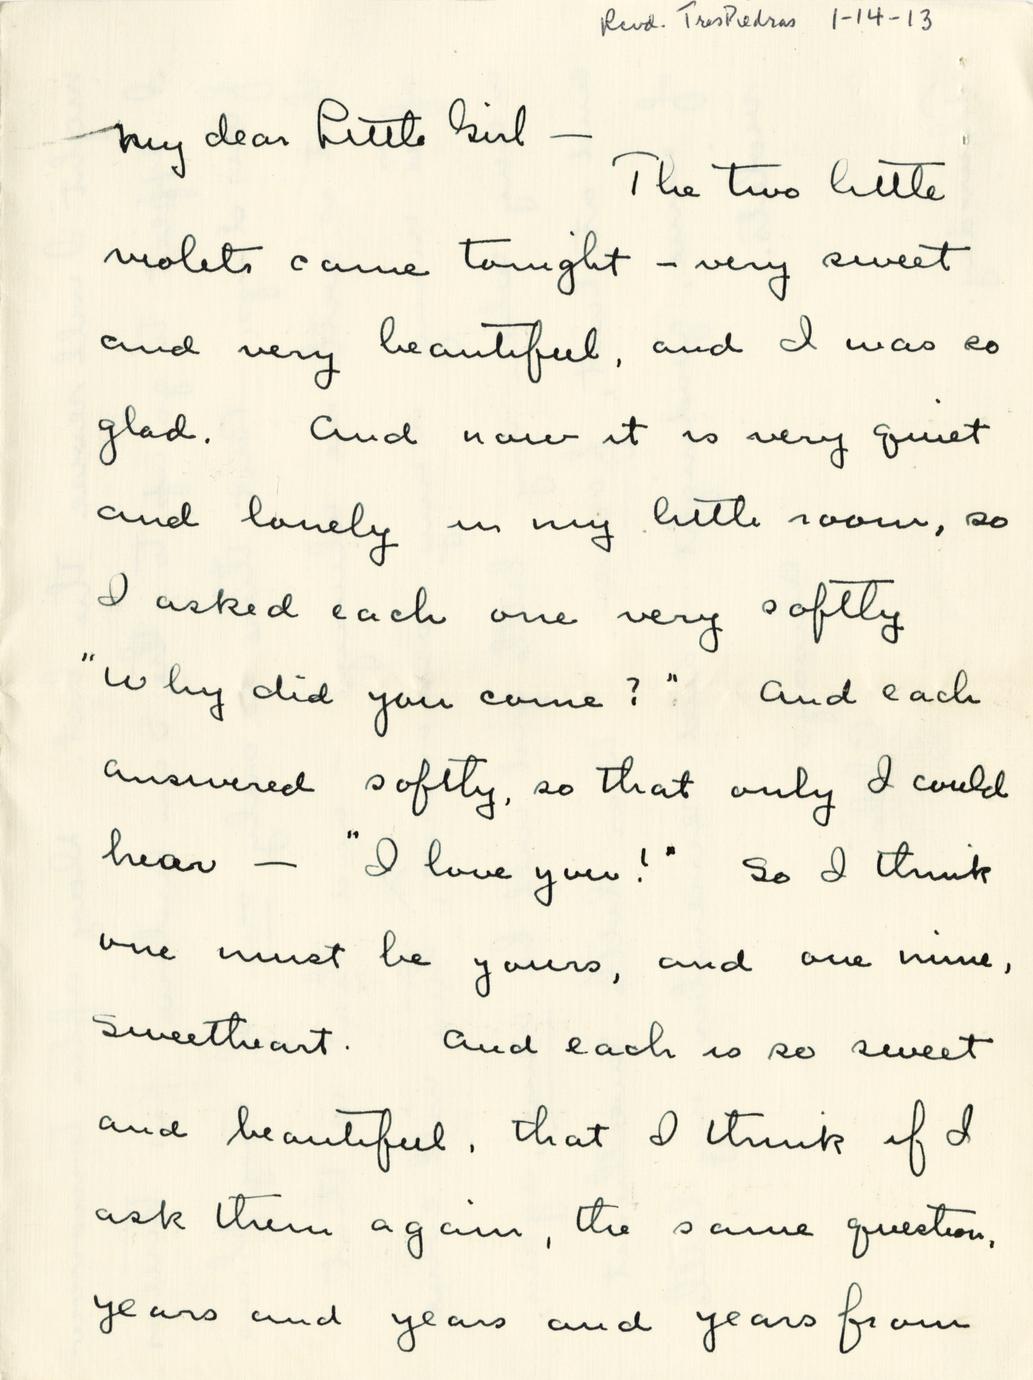 Recvd. Tres Piedras 1-14-13
My dear Little Girl —
The two little
violets came tonight - very sweet
and very beautiful, and I was so
glad. And now it is very quiet
and lonely in my little room, so
I asked each one very softly
"Why did you come?" And each
answered softly, so that only I could
hear — "I love you!" So I think
one must be yours, and one mine,
Sweetheart. And each is so sweet
and beautiful, that I think if I
ask them again, the same question,
years and years and years from